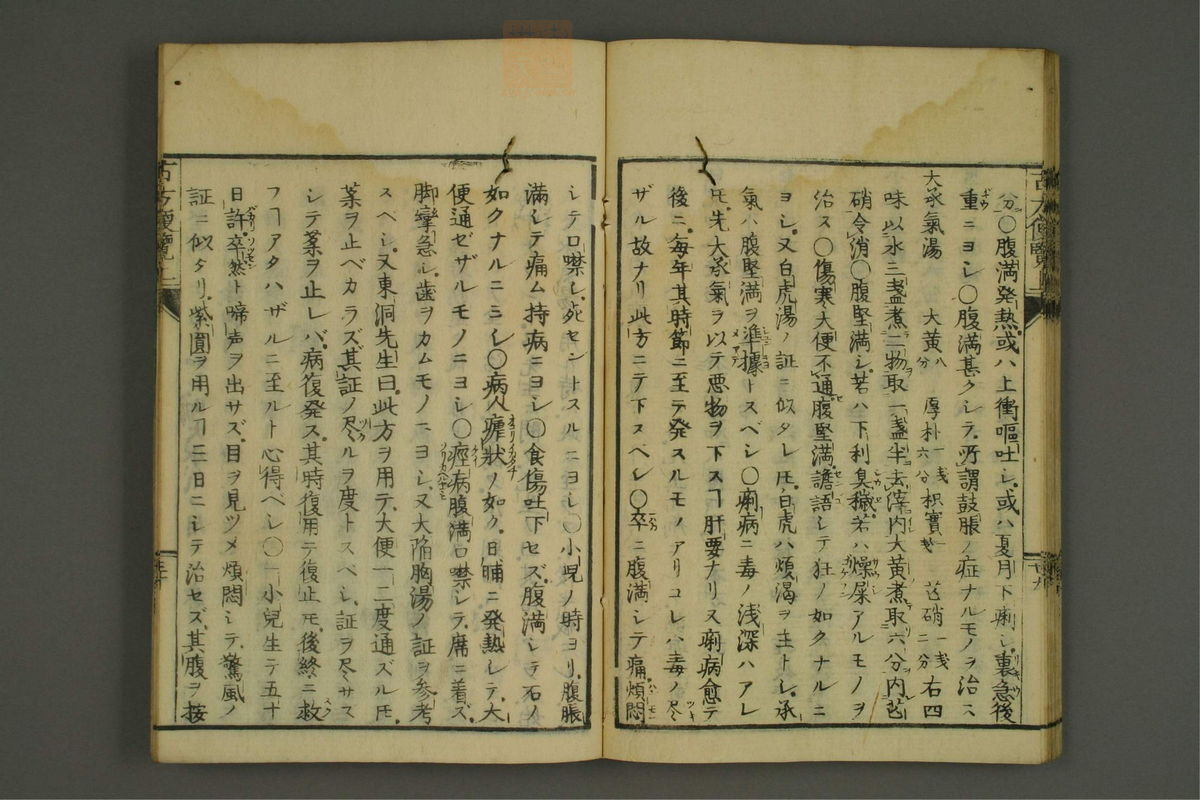 分○腹満発熱或ハ上衝嘔吐シ或ハ夏月下痢シ裏急後
重ニヨシ○腹満甚クシテ所謂鼓脹ノ症ナルモノヲ治ス
大承氣湯 大黄八分 厚朴一戔六分 枳實一戔 芒硝一戔二分 右四
味以水三盞煮二物取一盞半去滓内大黄煮取六分内芒
硝令消○腹堅満シ若ハ下利臭穢若ハ燥屎アルモノヲ
治ス○傷寒大便不通腹堅満譫語シテ狂ノ如クナルニ
ヨシ又白虎湯ノ証ニ似タレ𪜈白虎ハ煩渇ヲ主トシ承
氣ハ腹堅満ヲ準據トスベシ○痢病ニ毒ノ浅深ハアレ
𪜈先大承氣ヲ以テ悪物ヲ下スヿ肝要ナリ又痢病愈テ
後ニ毎年其時節ニ至テ発スルモノアリコレハ毒ノ尽
ザル故ナリ此方ニテ下スベシ○卒ニ腹満シテ痛煩悶
シテ口噤シ死セントスルニヨシ○小児ノ時ヨリ腹脹
満シテ痛ム持病ニヨシ○食傷吐下セズ腹満シテ石ノ
如クナルニヨシ○病人瘧状ノ如ク日晡ニ発熱シテ大
便通ゼザルモノニヨシ○痙病腹満口噤シテ席ニ着ズ
脚攣急シ歯ヲカムモノニヨシ又大陥胸湯ノ証ヲ参考
スベシ又東洞先生曰此方ヲ用テ大便一二度通ズル𪜈
薬ヲ止ベカラズ其証ノ尽ルヲ度トスベシ証ヲ尽サス
シテ薬ヲ止レバ病復発ス其時復用テ復止𪜈後終ニ救
フヿアタハザルニ至ルト心得ベシ○一小兒生テ五十
日許卒然ト啼声ヲ出サズ目ヲ見ツメ煩悶シテ驚風ノ
証ニ似タリ紫圓ヲ用ルヿ三日ニシテ治セズ其腹ヲ按